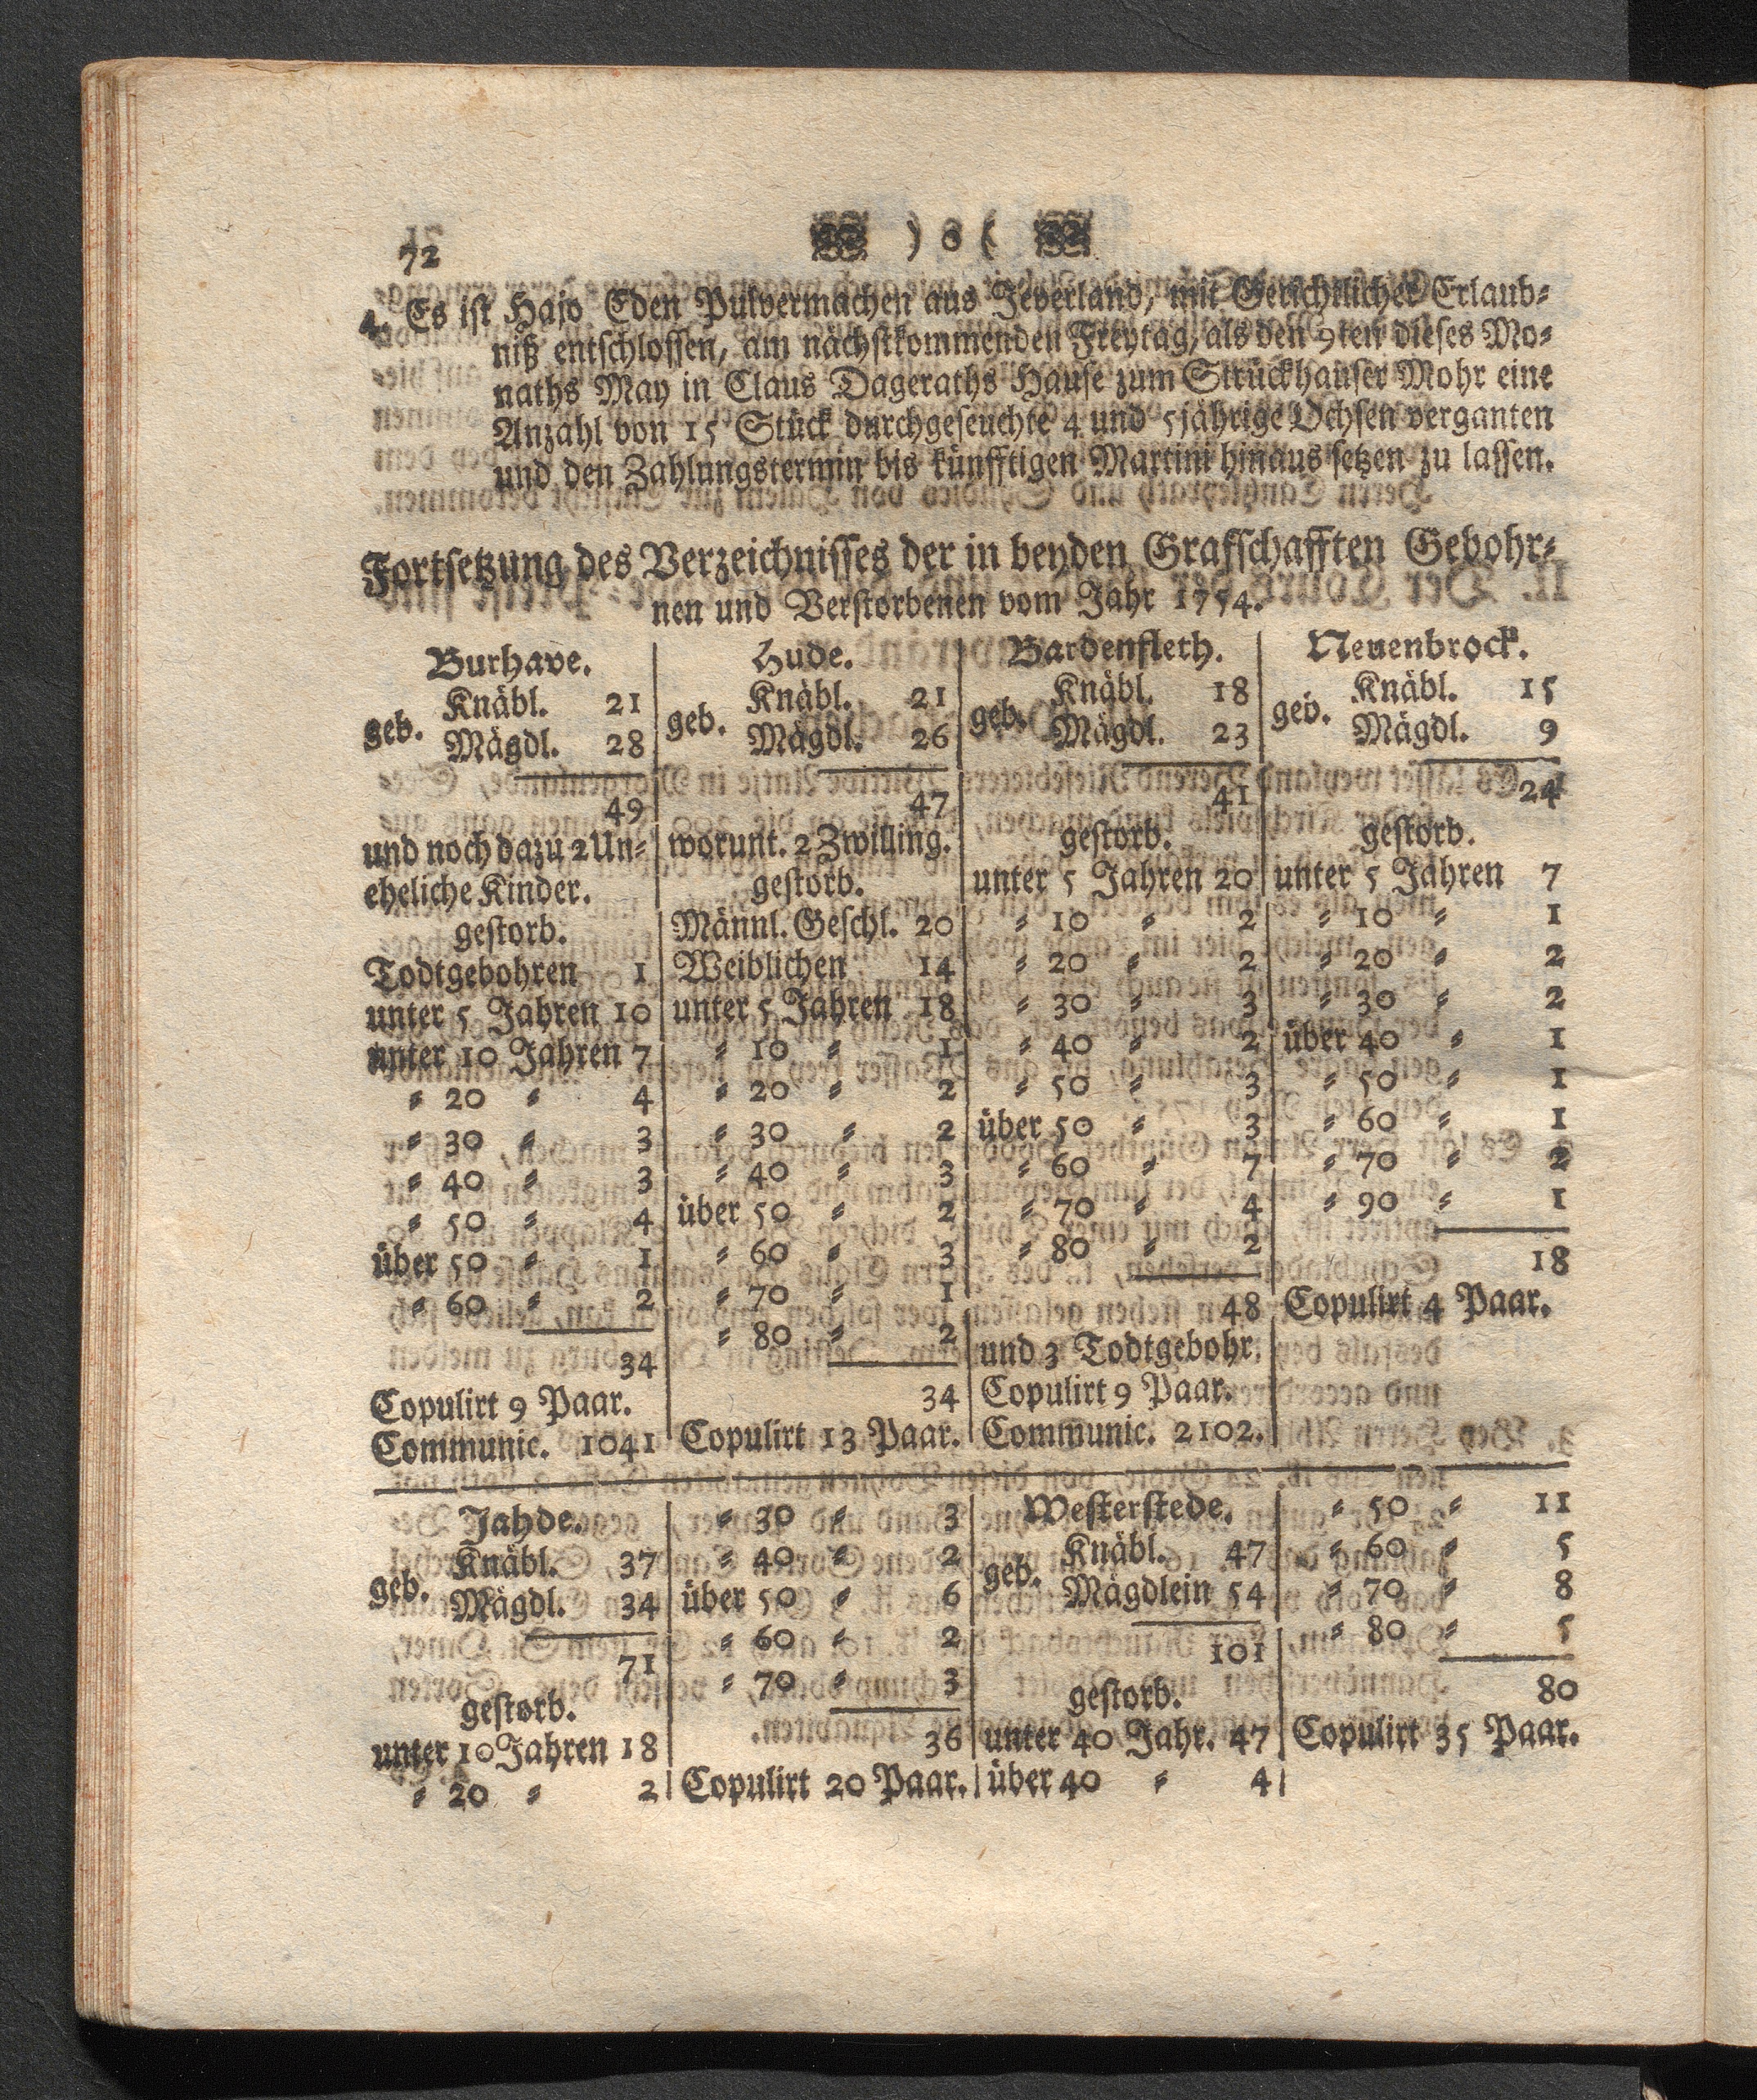 72 ) o (
4. Es ist Hajo Eden Pulvermachen aus Jeverland, mit Gerichtlicher Erlaub=
niß entschlossen, am nächstkommenden Freytag, als den 9ten dieses Mo=
naths May in Claus Dageraths Hause zum Strückhauser Mohr eine
Anzahl von 15 Stück durchgeseuchte 4 und 5jährige Ochsen verganten
und den Zahlungstermin bis künfftigen Martini hinaus setzen zu lassen.
Fortsetzung des Verzeichnisses der in beyden Grafschafften Gebohr=
nen und Verstorbenen vom Jahr 1754.
Burhave.
geb. Knäbl. 21
Mägdl. 28
49
und noch dazu 2 Un=
eheliche Kinder.
gestorb.
Todtgebohren 1
unter 5 Jahren 10
unter 10 Jahren 7
= 20 = 4
= 30 = 3
= 40 = 3
= 50 = 4
über 50 = 1
= 60 = 2
34
Copulirt 9 Paar.
Communic. 1041
Hude.
geb. Knäbl. 21
Mägdl. 26
47
worunt. 2 Zwilling.
gestorb.
Männl. Geschl. 20
Weiblichen 14
unter 5 Jahren 18
= 10 = 1
= 20 = 2
= 30 = 2
= 40 = 3
über 50 = 2
= 60 = 3
= 70 = 1
= 80 = 2
34
Copulirt 13 Paar.
Bardenfleth.
geb. Knäbl. 18
Mägdl. 23
41
gestorb.
unter 5 Jahren 20
= 10 = 2
= 20 = 2
= 30 = 3
= 40 = 2
= 50 = 3
über 50 = 3
= 60 = 7
= 70 = 4
= 80 = 2
48
und 3 Todtgebohr.
Copulirt 9 Paar.
Communic. 2102.
Neuenbrock.
geb. Knäbl. 15
Mägdl. 9
24
gestorb.
unter 5 Jahren 7
= 10 = 1
= 20 = 2
= 30 = 2
über 40 = 1
= 50 = 1
= 60 = 1
= 70 = 2
= 90 = 1
18
Copulirt 4 Paar.
Jahde.
geb. Knäbl. 37
Mägdl. 34
71
gestorb.
unter 10 Jahren 18
= 20 = 2
= 30 = 3
= 40 = 2
über 50 = 6
= 60 = 2
= 70 = 3
36
Copulirt 20 Paar.
Westerstede.
geb. Knäbl. 47
Mägdlein 54
101
gestorb.
unter 40 Jahr. 47
über 40 = 4
= 50 = 11
= 60 = 5
= 70 = 8
= 80 = 5
80
Copulirt 35 Paar.